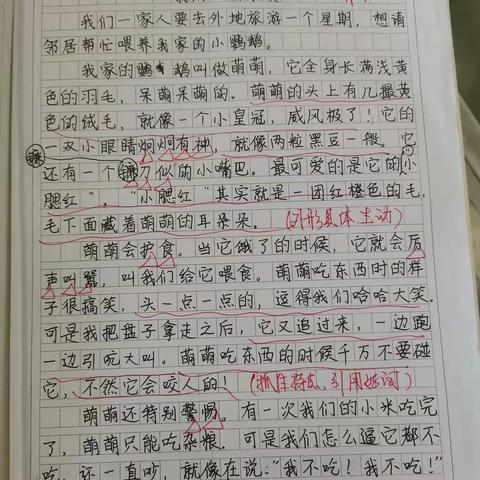 我们一家人要去外地旅游一个星期，想请
邻居帮忙喂养我家的小鹦鹉。
我家的鹦鹉叫做萌萌，它全身长满浅黄
色的羽毛，呆萌呆萌的。萌萌的头上有几撮黄
色的绒毛，就像一个小皇冠，威风极了！它的
一双小眼睛炯炯有神，就像两粒黑豆一般。它
还有一个镰刀似的小嘴巴。最可爱的是它的“小
腮红”。“小腮红”其实就是一团红橙色的毛，
毛下面藏着萌萌的耳朵朵。（外形具体生动）
萌萌会护食。当它饿了的时候，它就会厉
声叫嚣，叫我们给它喂食。萌萌吃东西时的样
子很搞笑，头一点一点的，逗得我们哈哈大笑。
可是我把盘子拿走之后，它又追过来，一边跑
一边引吭大叫。萌萌吃东西的时候千万不要碰
它，不然它会咬人的！（抓住特点，引用好词）
萌萌还特别警惕。有一次我们的小米吃完
了，萌萌只能吃杂粮。可是我们怎么逼它都不
吃，还一直吵，就像在说：“我不吃！我不吃！”